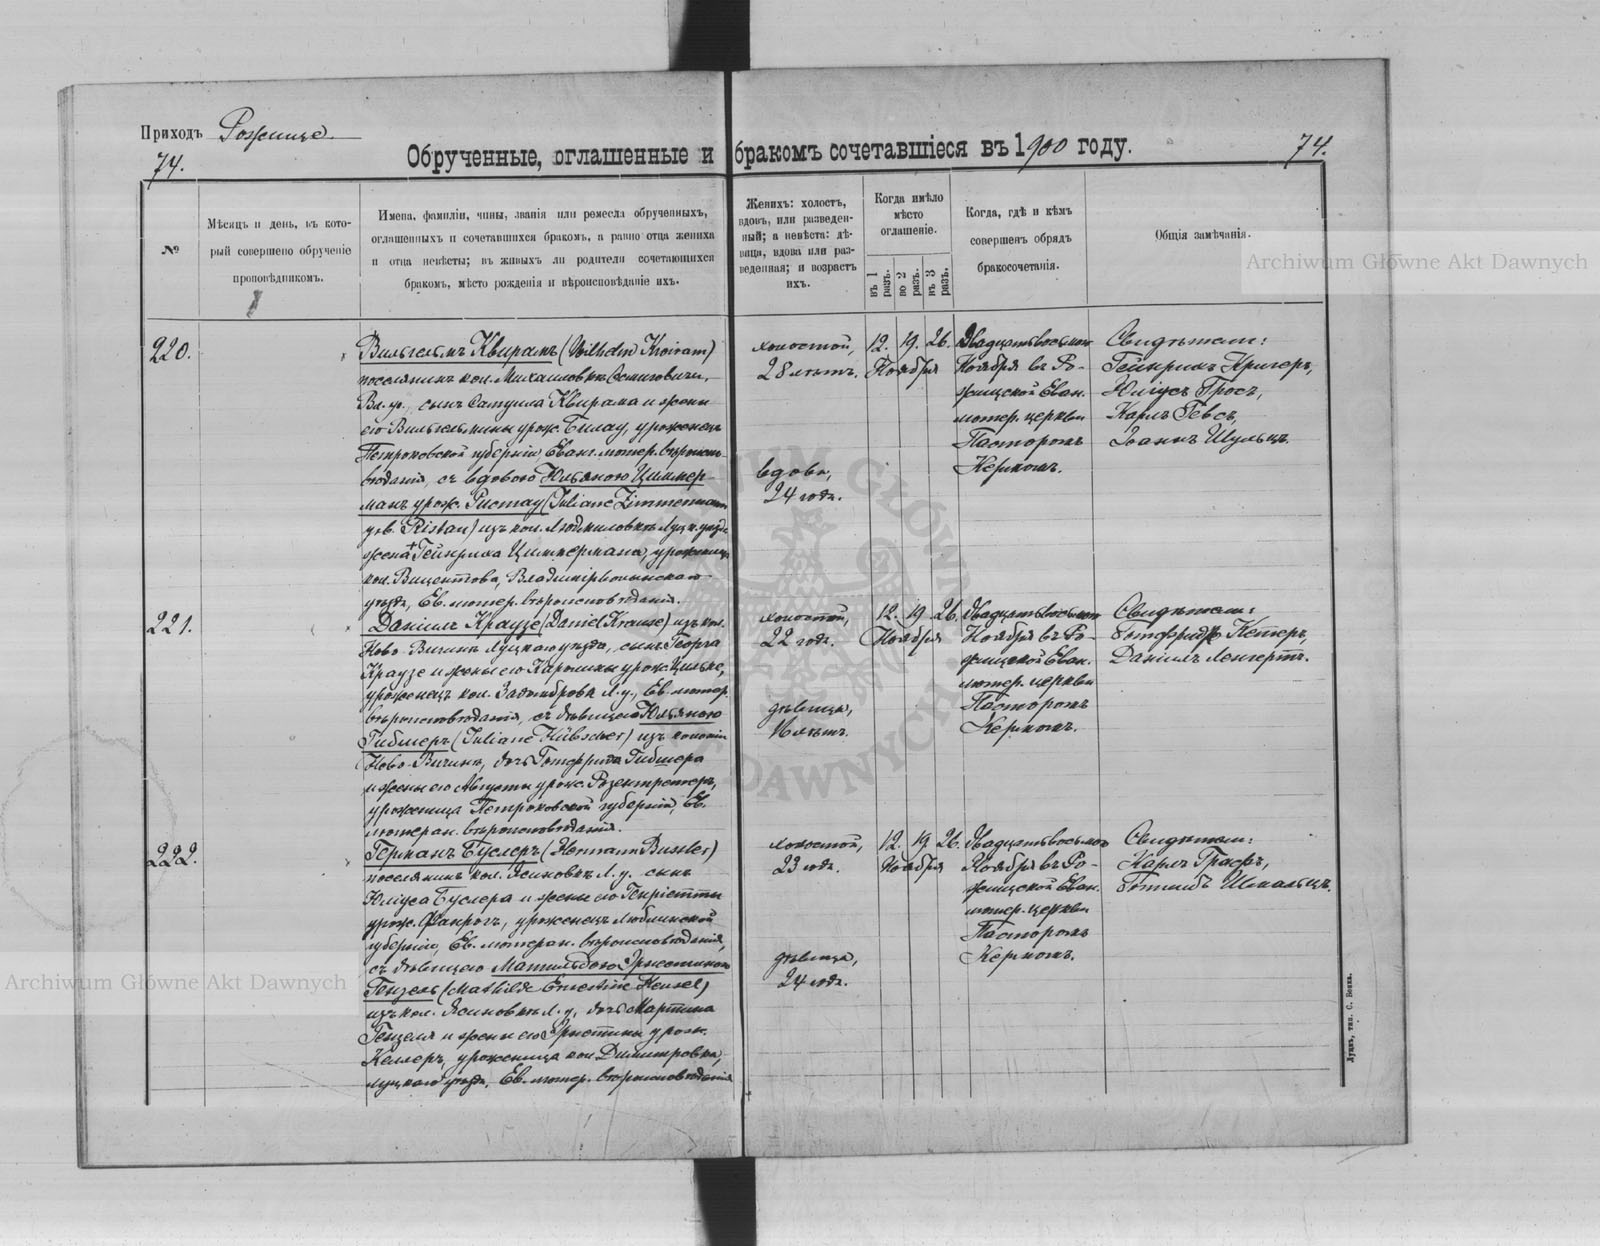 Приходъ Рожище
74.
Обрученные, оглашенные и бракомъ сочетавшіеся въ 1900 году.
74.
№
Мѣсяцъ и день, въ кото-
рый совершено обрученіе
проповѣдникомъ.
Имена, фамиліи, чины, званія или ремесла обрученныхъ,
оглашенныхъ и сочетавшихся бракомъ, а равно отца жениха
и отца невѣсты; въ живыхъ ли родители сочетающихся
бракомъ, мѣсто рожденія и вѣроисповѣданіе ихъ.
Женихъ: холостъ,
вдовъ, или разведен-
ный; а невѣста: дѣ-
вица, вдова или раз-
веденная; и возрастъ
ихъ.
Когда имѣло
мѣсто
оглашеніе.
въ 1 разъ.
во 2 разъ.
въ 3 разъ.
Когда, гдѣ и кѣмъ
совершенъ обрядъ
бракосочетанія.
Общія замѣчанія.
220.
Вильгельмъ Квирамъ (Wilhelm Kwiram)
поселянинъ кол. Михаиловка
Вл. у., сынъ Самуила Квирама и жены
его Вильгельмины урож. Билау, уроженецъ
Петроковской губерніи, Еванг. лютер. вѣроиспо-
вѣданія, съ вдовою Юльяною Циммер-
манъ урож. Ристау (Juliane Zimmermann
geb. Ristau) изъ кол. Людмиловка Луцк. уѣзда
жена + Гейнриха Циммермана, уроженица
кол. Вицентова, Владимірволынскаго
уѣзда, Ев. лютер. вѣроисповѣданія.
холостой,
28 лѣтъ.
вдова,
24 года.
12. 19. 26.
Ноября
Двадцатьвосьмого
Ноября въ Ро-
жищской Еван.
лютер. церкви
Пасторомъ
Кермомъ.
Свидѣтели:
Гейнрихъ Кригеръ,
Юліусъ Гросъ,
Карлъ Гевсъ,
Іоаннъ Шульцъ
221.
Даніилъ Краузе (Daniel Krause) изъ кол.
Ново Вичинъ Луцкаго уѣзда, сынъ Георга
Краузе и жены его Каролины урож. Цильке,
уроженецъ кол. Задомбровка Л. у., Ев. лютер.
вѣроисповѣданія, съ дѣвицею Юльяною
Гибшеръ (Juliane Hübscher) изъ колоніи
Ново-Вичинъ, дочь Готфрида Гибшера
и жены его Августы урож. Розентретеръ,
уроженица Петроковской губерніи, Ев.
лютеран. вѣроисповѣданія.
холостой,
22 года.
дѣвица,
лѣтъ.
12. 19. 26.
Ноября
Двадцатьвосьмого
Ноября въ Ро-
жищской Еван.
лютер. церкви
Пасторомъ
Кермомъ.
Свидѣтели:
Готфридъ Кетеръ,
Даніилъ Ленгертъ.
222.
Германъ Буслеръ (Hermann Bussler)
поселянинъ кол. Ясиновка Л. у. сынъ
Юліуса Буслера и жены его Генріетты
урож. Фанрогъ, уроженецъ Люблинской
губерніи, Ев. лютеран. вѣроисповѣданія,
съ дѣвицею Матильдою Эрнестиною
Гензель (Mathilde Ernestine Hensel)
изъ кол. Ясиновка Л. у., дочь Мартина
Гензеля и жены его Эрнстины урож.
Келлеръ, уроженица кол. Димитровка,
Луцкаго уѣзда, Ев. лютер. вѣроисповѣданія
холостой,
23 года.
дѣвица,
24 года.
12. 19. 26.
Ноября
Двадцатьвосьмого
Ноября въ Ро-
жищской Еван.
лютер. церкви
Пасторомъ
Кермомъ.
Свидѣтели:
Карлъ Графъ,
Готлибъ Шмальцъ.
Луцкъ, тип. С. Бокка.
Archiwum Główne Akt Dawnych
Archiwum Główne Akt Dawnych